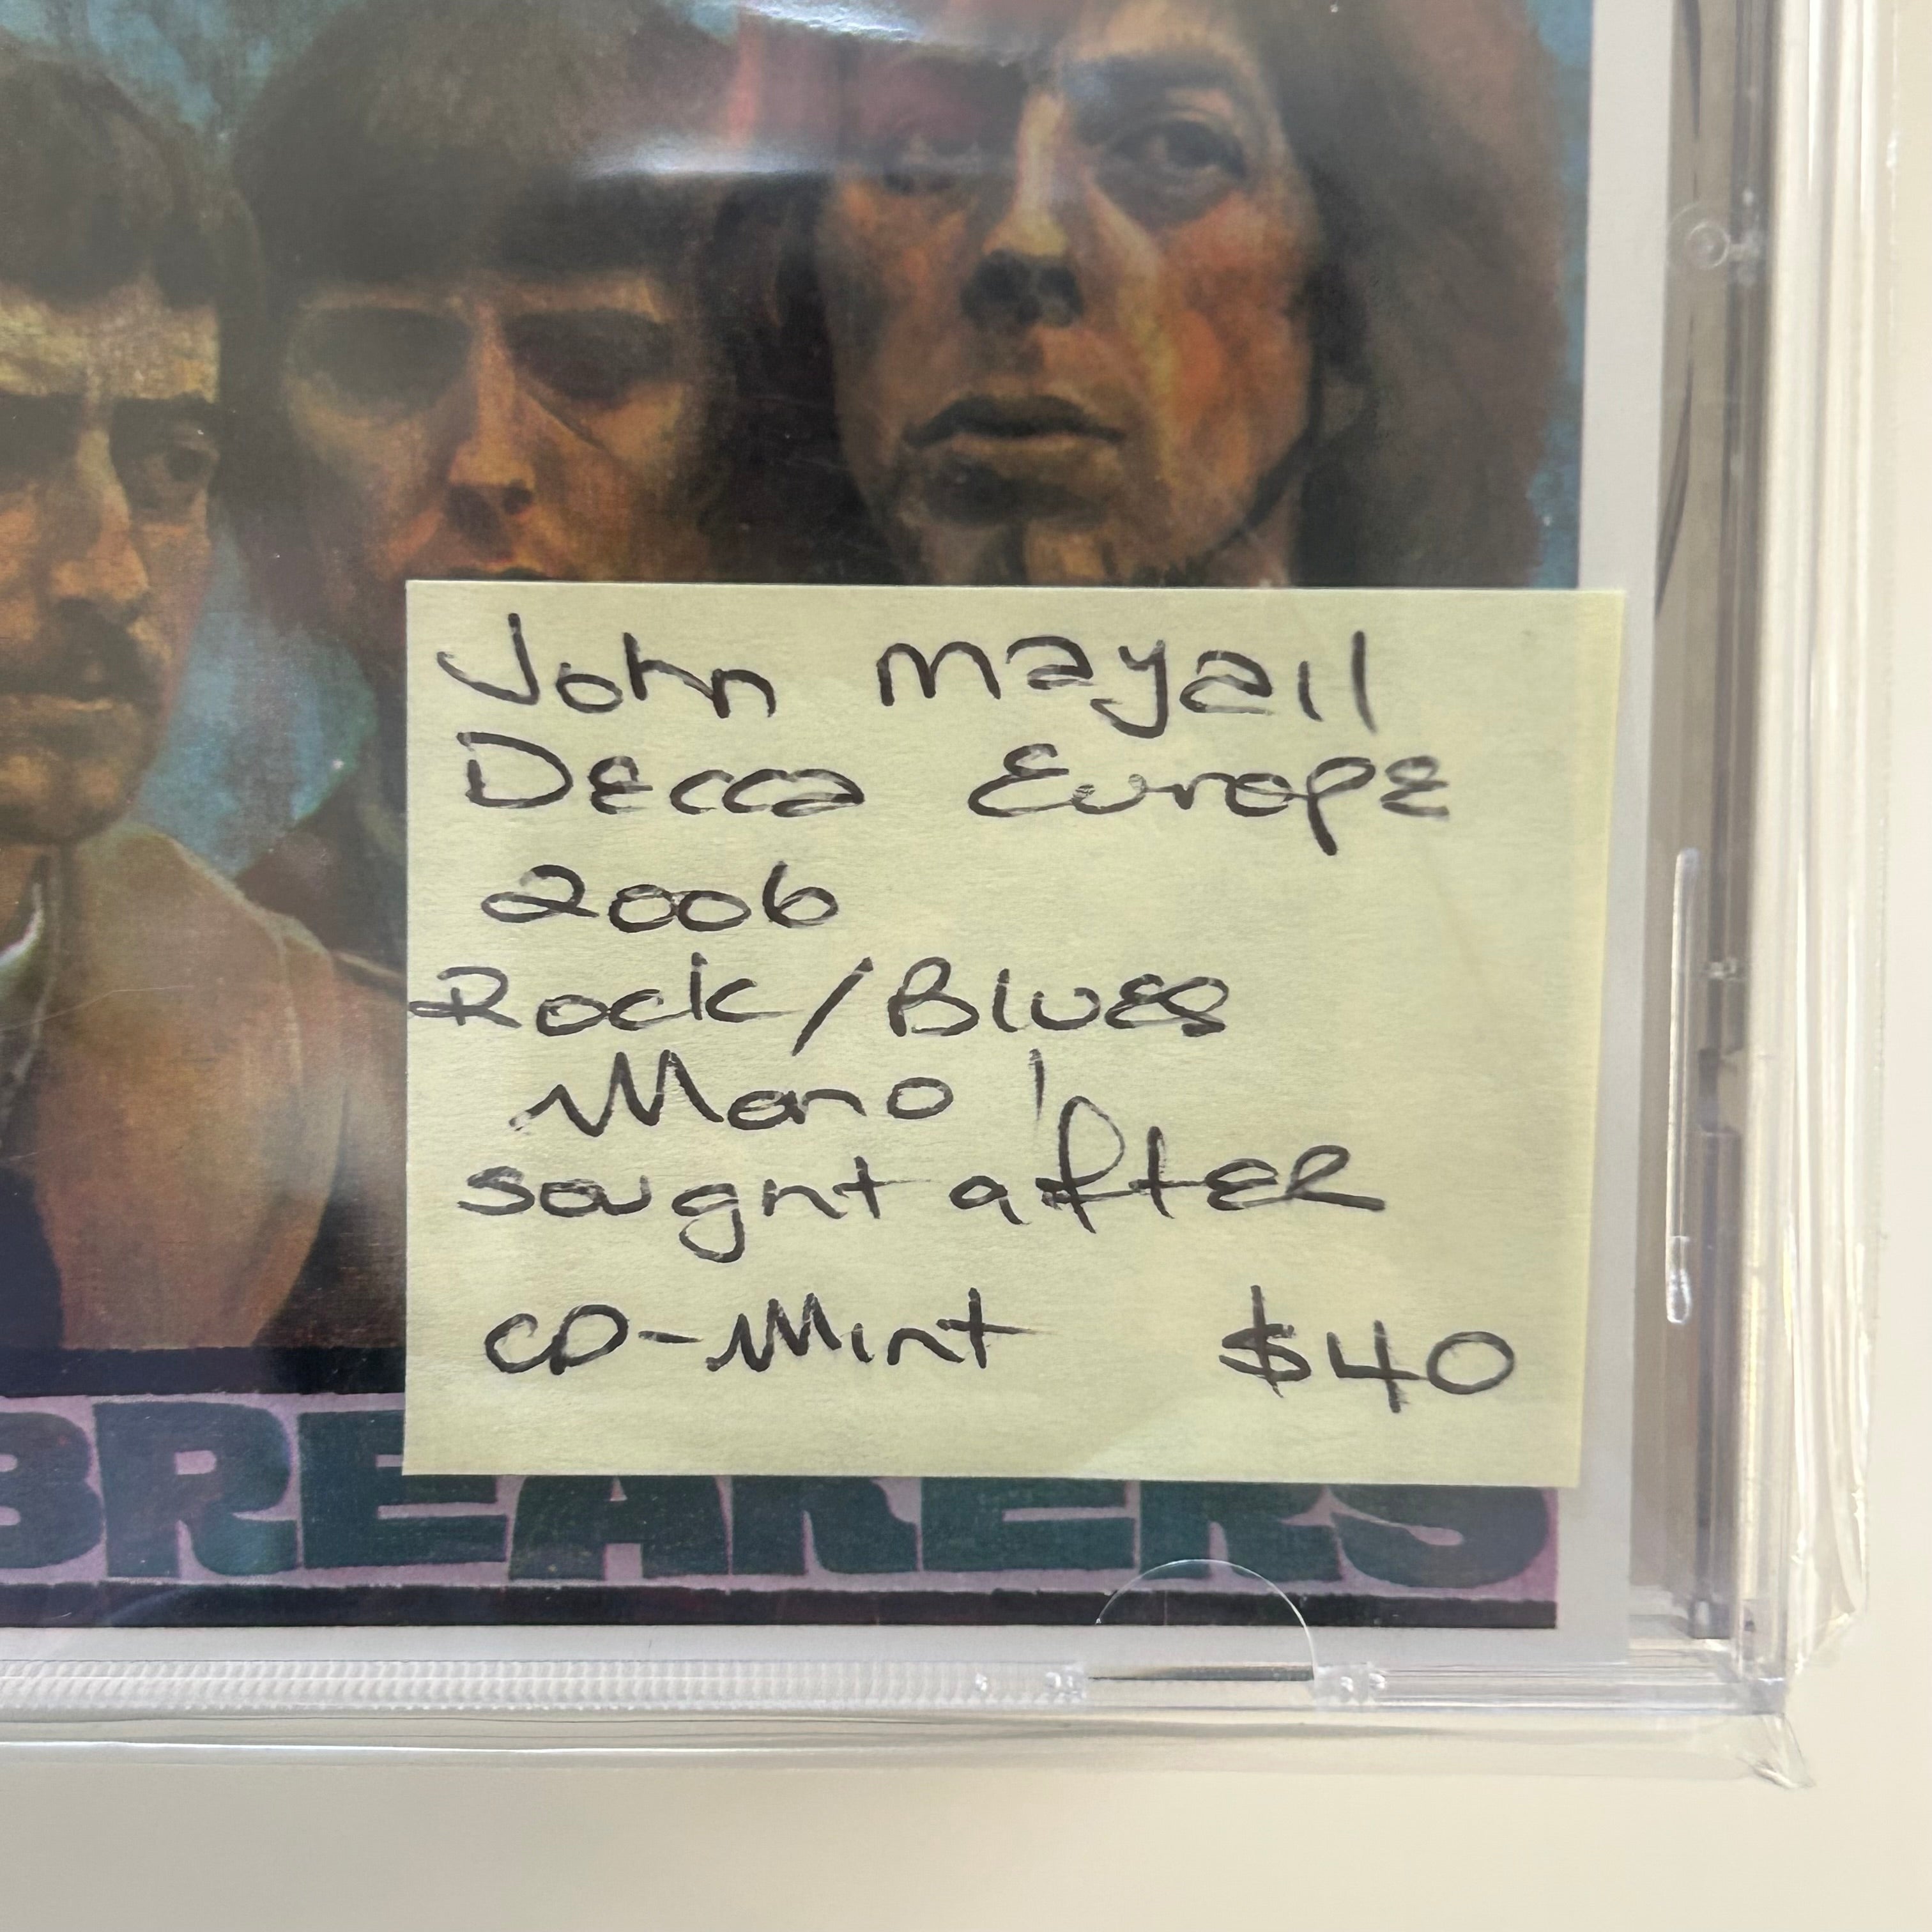 John mayall
Decca Europe
2006
Rock/Blues
Mono!
sought after
CD-Mint $40
BREAKERS